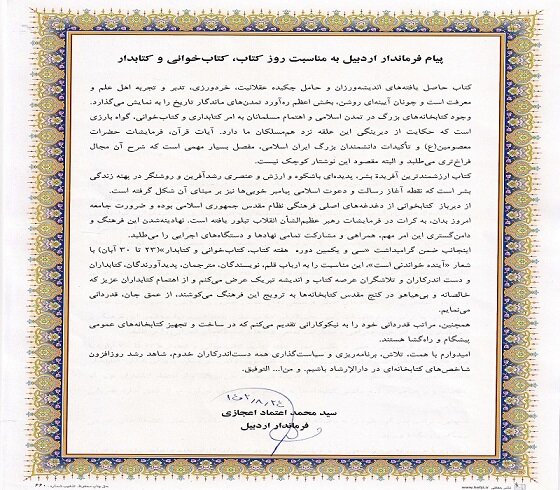 پیام فرماندار اردبیل به مناسبت روز کتاب، کتاب‌خوانی و کتابدار
کتاب حاصل یافته‌های اندیشه‌ورزان و حامل چکیده عقلانیت، خردورزی، تدبر و تجربه اهل علم و
معرفت است و چونان آیینه‌ای روشن، بخش اعظم ره‌آورد تمدن‌های ماندگار تاریخ را به نمایش می‌گذارد.
وجود کتابخانه‌های بزرگ در تمدن اسلامی و اهتمام مسلمانان به امر کتابداری و کتاب‌خوانی، گواه بارزی
است که حکایت از دیرینگی این علقه نزد هم‌مسلکان ما دارد. آیات قرآن، فرمایشات حضرات
معصومین(ع) و تأکیدات دانشمندان بزرگ ایران اسلامی، مفصل بسیار مهمی است که شرح آن مجال
فراخ‌تری می‌طلبد و البته مقصود این نوشتار کوچک نیست.
کتاب ارزشمندترین آفریدة بشر، پدیده‌ای باشکوه و ارزش و عنصری رشدآفرین و روشنگر در پهنه زندگی
بشر است که نقطه آغاز رسالت و دعوت اسلامی پیامبر خوبی‌ها نیز بر مبنای آن شکل گرفته است.
از دیرباز کتابخوانی از دغدغه‌های اصلی فرهنگی نظام مقدس جمهوری اسلامی بوده و ضرورت جامعه
امروز بدان، به کرات در فرمایشات رهبر عظیم‌الشأن انقلاب تبلور یافته است. نهادینه‌شدن این فرهنگ و
دامن‌گستری این امر مهم، همراهی و مشارکت تمامی نهادها و دستگاه‌های اجرایی را می‌طلبد.
اینجانب ضمن گرامیداشت «سی و یکمین دوره هفته کتاب، کتاب‌خوانی و کتابدار»(۲۳ تا ۳۰ آبان) با
شعار «آینده خواندنی است»، این مناسبت را به ارباب قلم، نویسندگان، مترجمان، پدیدآورندگان، کتابداران
و دست اندرکاران و تلاشگران عرصه کتاب و اندیشه تبریک عرض می‌کنم و از اهتمام کتابداران عزیز که
خالصانه و بی‌هیاهو در کنج مقدس کتابخانه‌ها به ترویج این فرهنگ می‌کوشند، از عمق جان، قدردانی
می‌نمایم.
همچنین، مراتب قدردانی خود را به نیکوکارانی تقدیم می‌کنم که در ساخت و تجهیز کتابخانه‌های عمومی
پیشگام و راه‌گشا هستند.
امیدوارم با همت، تلاش، برنامه‌ریزی و سیاست‌گذاری همه دست‌اندرکاران خدوم، شاهد رشد روزافزون
شاخص‌های کتابخانه‌ای در دارالارشاد باشیم. و من‌ا... التوفیق.
سید محمد اعتماد اعجازی
فرماندار اردبیل